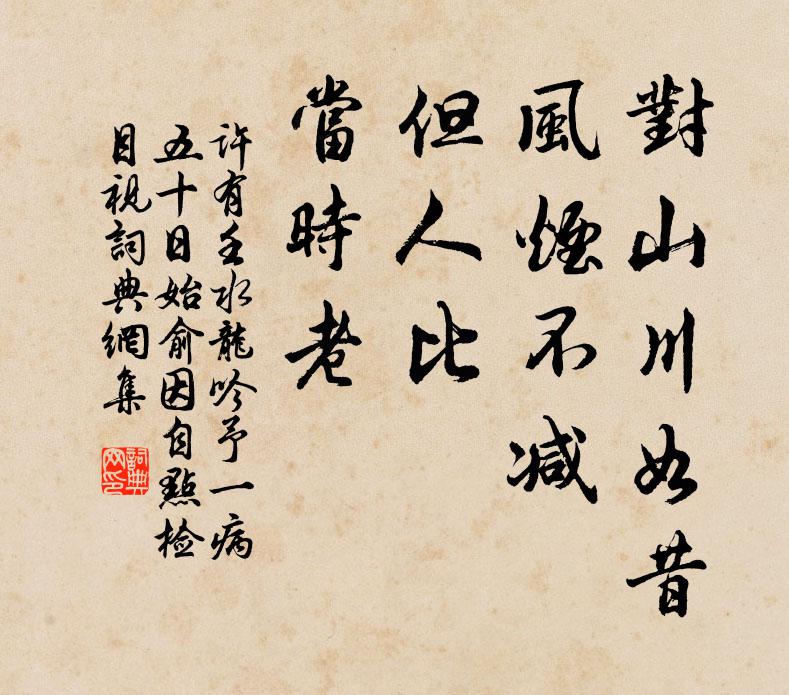 對山川如昔
風煙不减
但人比
當時老
許有壬水龍吟予一病
五十日始俞因自點檢
目視詞典網集
詞典
网印